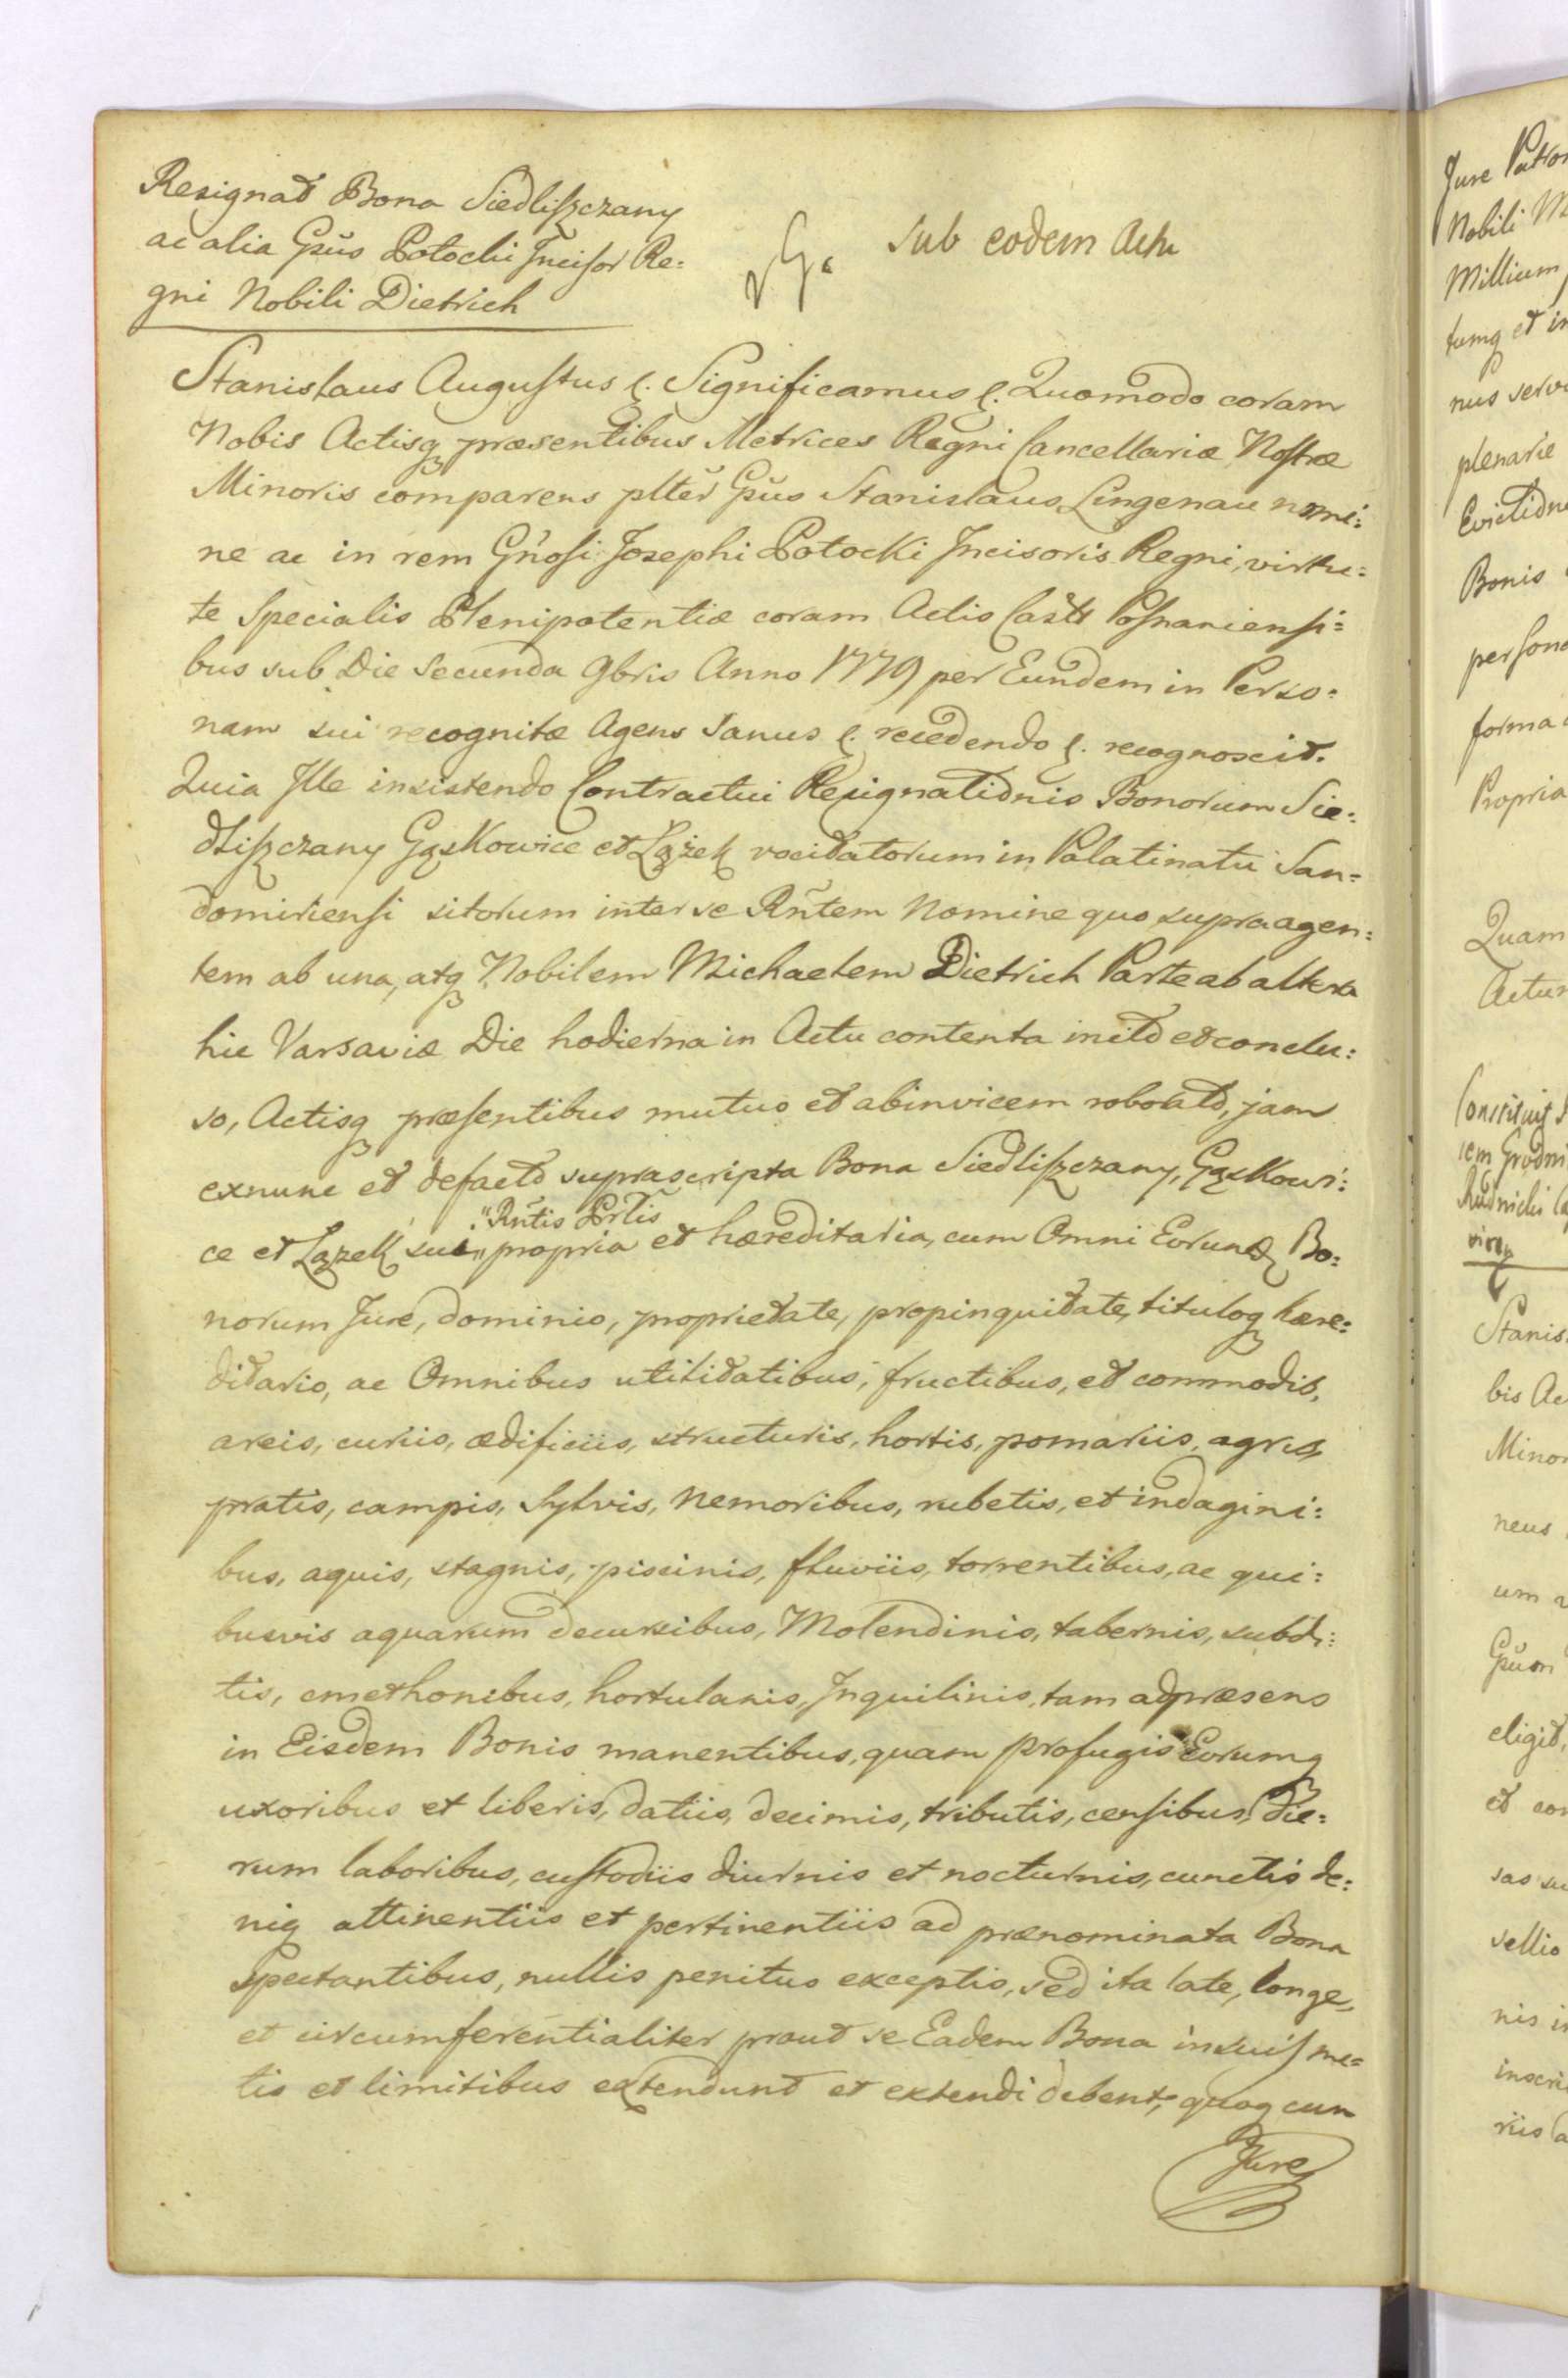 Resignat Bona Siedliszczany
ac alia Gn̄s Potocki Incisor Re:
gni Nobili Dietrich
Sub eodem Actu
Stanislaus Augustus &. Significamus &. Quomodo coram
Nobis Actisq̨ præsentibus Metrices Regni Cancellariæ Nostræ
Minoris comparens plter̄ Gn̄s Stanislaus Lingenau nomi:
ne ac in rem Gn̄osi Josephi Potocki Incisoris Regni, virtu:
te Specialis Plenipotentiæ coram Actis Castr Posnaniensi:
bus sub Die Secunda 9bris Anno 1779 per Eundem in Perso:
nam sui recognitæ Agens Sanus &. recedendo &. recognoscit.
Quia Ille insistendo Contractui Resignationis Bonorum Sie:
dliszczany Gąskowice et Łążek vocitatorum in Palatinatu San:
domiriensi sitorum inter se Rn̄tem Nomine quo supra agen:
tem ab una, atq̨ Nobilem Michaelem Dietrich Parte ab altera
hic Varsaviæ Die hodierna in Actu contenta inito et conclu:
so, Actisq̨ præsentibus mutuo et abinvicem roborato, jam
exnunc et defacto suprascripta Bona Siedliszczany, Gąskowi:
"Rn̄tis Prlis̄
ce et Łązek sua " propria et hæreditaria, cum Omni Eorund Bo:
norum Jure, dominio, proprietate, propinquitate, tituloq̨ hære:
ditario, ac Omnibus utilitatibus, fructibus, et commodis,
areis, curiis, ædificiis, structuris, hortis, pomariis, agris,
pratis, campis, Sylvis, Nemoribus, rubetis, et indagini:
bus, aquis, stagnis, piscinis, fluviis, torrentibus, ac qui:
busvis aquarum decursibus, Molendinis, tabernis, subdi:
tis, cmethonibus, hortulanis, Inquilinis, tam ad præsens
in Eisdem Bonis manentibus, quam profugis Eorumq̨
uxoribus et liberis, datiis, decimis, tributis, censibus, die:
rum laboribus, custodiis diurnis et nocturnis, cunctis de:
niq̨ attinentiis et pertinentiis ad prænominata Bona
Spectantibus, nullis penitus exceptis, sed ita late, longe,
et circumferentialiter prout se Eadem Bona in suis me:
tis et limitibus extendunt et extendi debent, quoq̨ cum
Jure
Jure Patro
Nobili M
Millium
tumq̨ et in
nus serv
plenarie
Evictione
Bonis
persona
forma
Propria
Quam
Actum
Constituit
Stanis
bis Ac
Minor
neus
um
Gn̄um
eligit,
et con
sas su
vellio
nis in
inscri